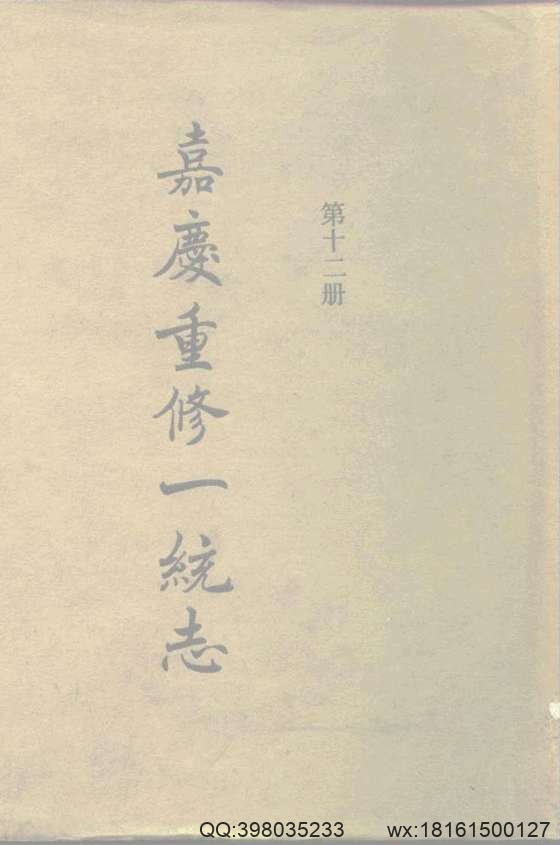 第十二册
嘉慶重修一統志
QQ:398035233 wx:18161500127